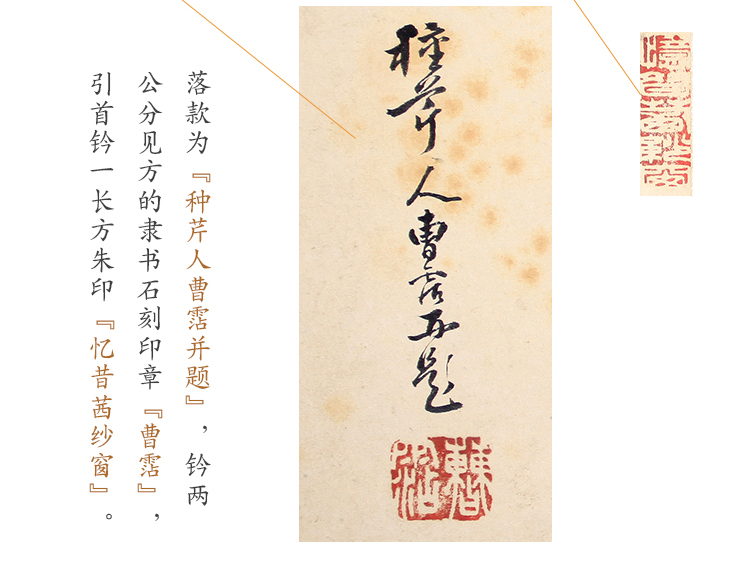 落款为『种芹人曹霑并题』，钤两
公分见方的隶书石刻印章『曹霑』，
引首钤一长方朱印『忆昔茜纱窗』。
種芹人曹霑并題
曹霑
憶昔茜紗窗